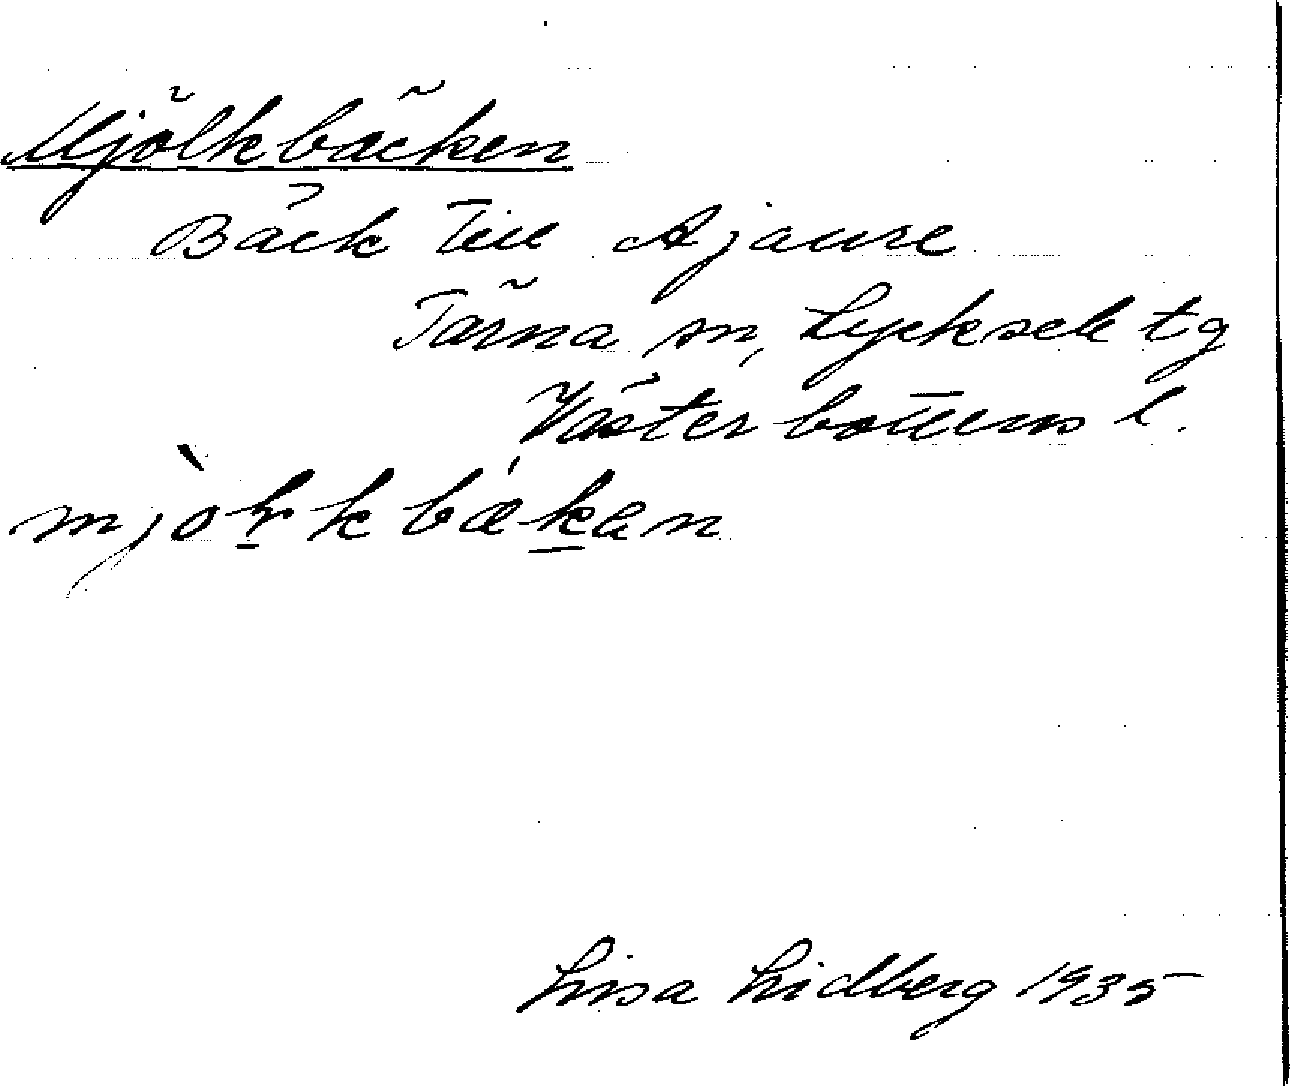 Mjölkbäcken
Bäck till Ajaure
Tärna sn, Lycksele tg
Västerbottens l.
mjòlkbækan
Lisa Lidberg 1935